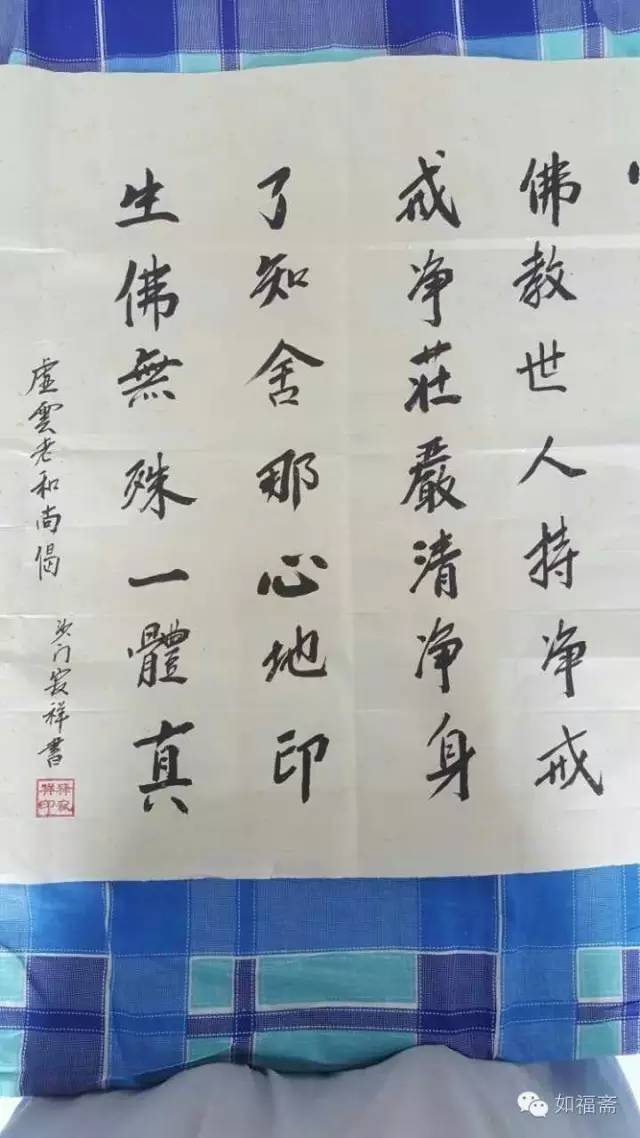 佛教世人持净戒
戒净莊嚴清净身
了知舍那心地印
生佛無殊一體真
虛雲老和尚偈
沙门寂祥書
釋寂祥印
如福斋